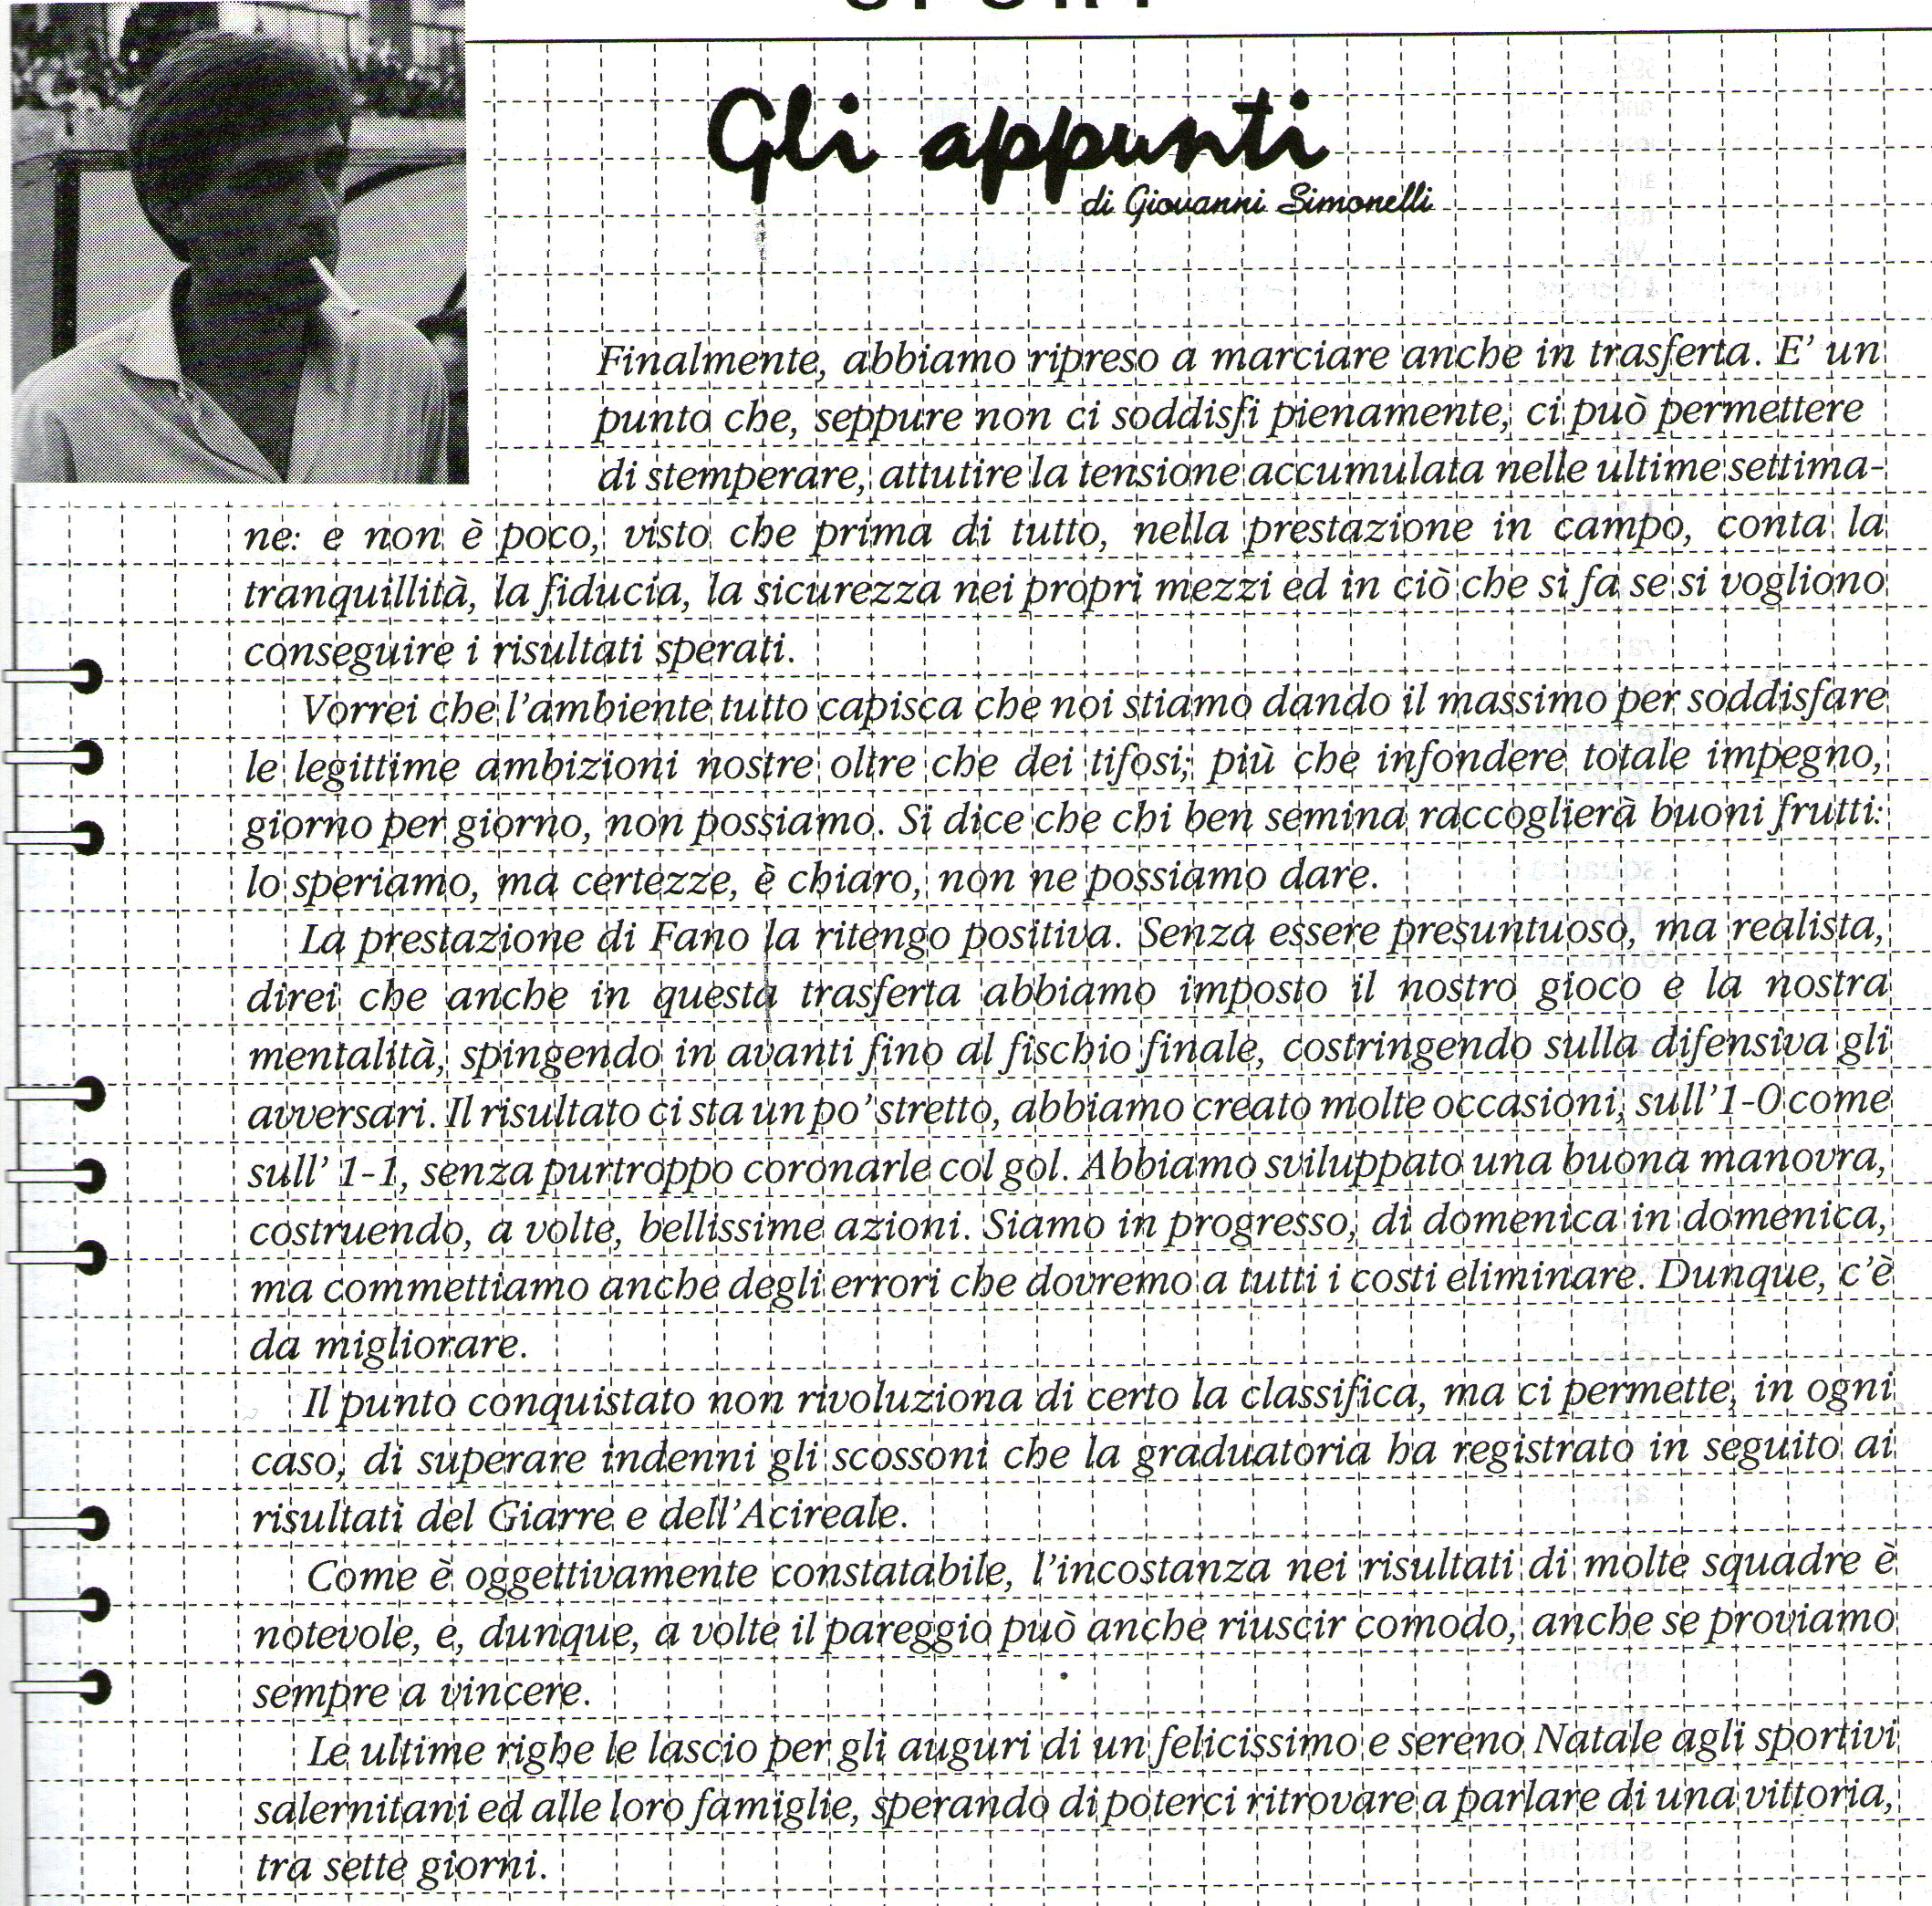 SPORT
Gli appunti
di Giovanni Simonelli
Finalmente, abbiamo ripreso a marciare anche in trasferta. E' un
punto che, seppure non ci soddisfi pienamente, ci può permettere
di stemperare, attutire la tensione accumulata nelle ultime settima-
ne: e non è poco, visto che prima di tutto, nella prestazione in campo, conta la
tranquillità, la fiducia, la sicurezza nei propri mezzi ed in ciò che si fa se si vogliono
conseguire i risultati sperati.
Vorrei che l'ambiente tutto capisca che noi stiamo dando il massimo per soddisfare
le legittime ambizioni nostre oltre che dei tifosi; più che infondere totale impegno,
giorno per giorno, non possiamo. Si dice che chi ben semina raccoglierà buoni frutti:
lo speriamo, ma certezze, è chiaro, non ne possiamo dare.
La prestazione di Fano la ritengo positiva. Senza essere presuntuoso, ma realista,
direi che anche in questa trasferta abbiamo imposto il nostro gioco e la nostra
mentalità, spingendo in avanti fino al fischio finale, costringendo sulla difensiva gli
avversari. Il risultato ci sta un po' stretto, abbiamo creato molte occasioni, sull'1-0 come
sull' 1-1, senza purtroppo coronarle col gol. Abbiamo sviluppato una buona manovra,
costruendo, a volte, bellissime azioni. Siamo in progresso, di domenica in domenica,
ma commettiamo anche degli errori che dovremo a tutti i costi eliminare. Dunque, c'è
da migliorare.
Il punto conquistato non rivoluziona di certo la classifica, ma ci permette, in ogni
caso, di superare indenni gli scossoni che la graduatoria ha registrato in seguito ai
risultati del Giarre e dell'Acireale.
Come è oggettivamente constatabile, l'incostanza nei risultati di molte squadre è
notevole, e, dunque, a volte il pareggio può anche riuscir comodo, anche se proviamo
sempre a vincere.
Le ultime righe le lascio per gli auguri di un felicissimo e sereno Natale agli sportivi
salernitani ed alle loro famiglie, sperando di poterci ritrovare a parlare di una vittoria,
tra sette giorni.